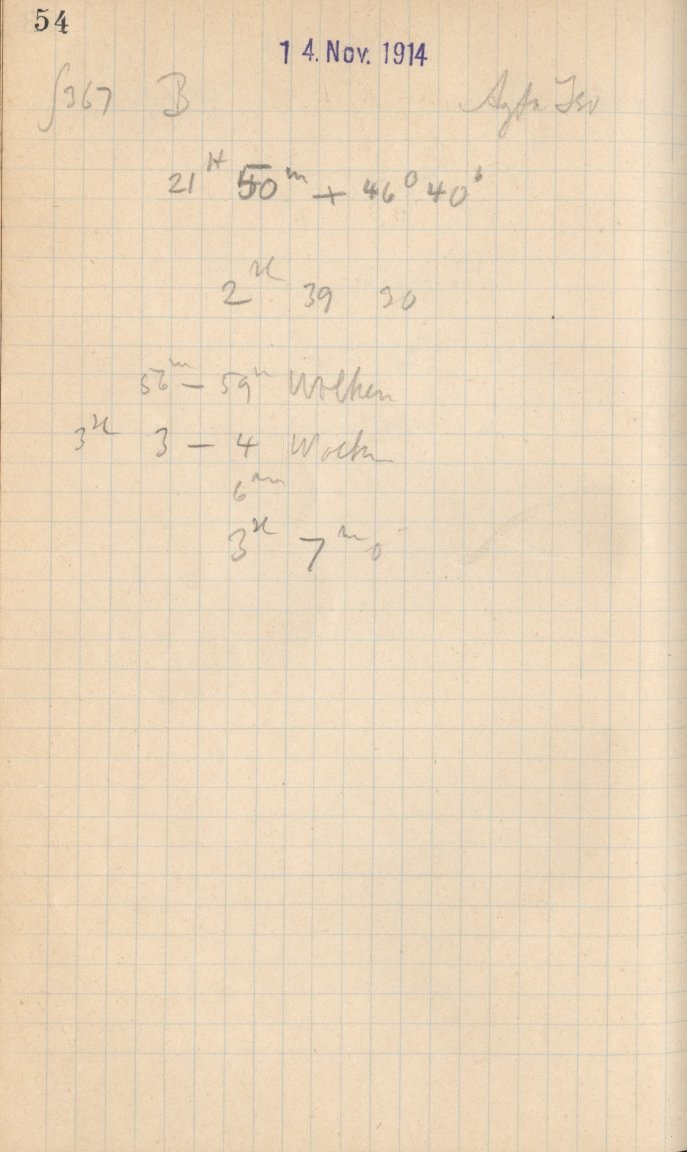 54
14. Nov. 1914
367 B Agfa Iso
21ᴴ 50ᵐ + 46° 40'
2ʰ 39 20
56ᵐ – 59ᵐ Wolken
3ʰ 3 – 4 Wolken
6ᵐ
3ʰ 7ᵐ 0